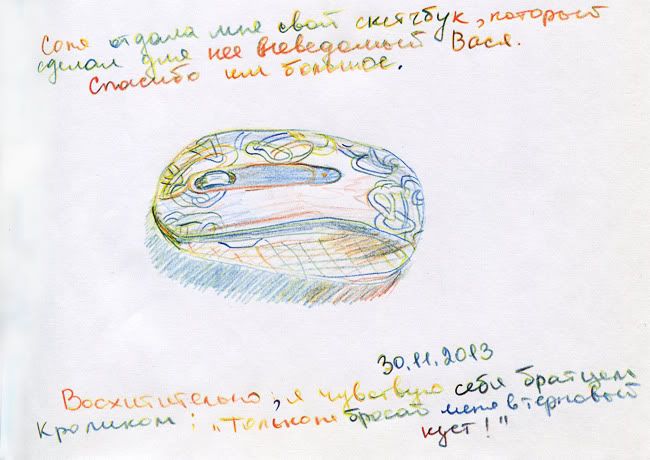 Соня отдала мне свой скетчбук, который
сделал для нее неведомый Вася.
Спасибо им большое.
30.11.2013
Восхитительно, я чувствую себя братцем
Кроликом: „Только не бросай меня в терновый
куст!"